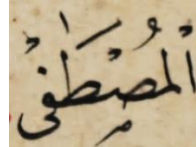 الْمُصْطَفَىْ